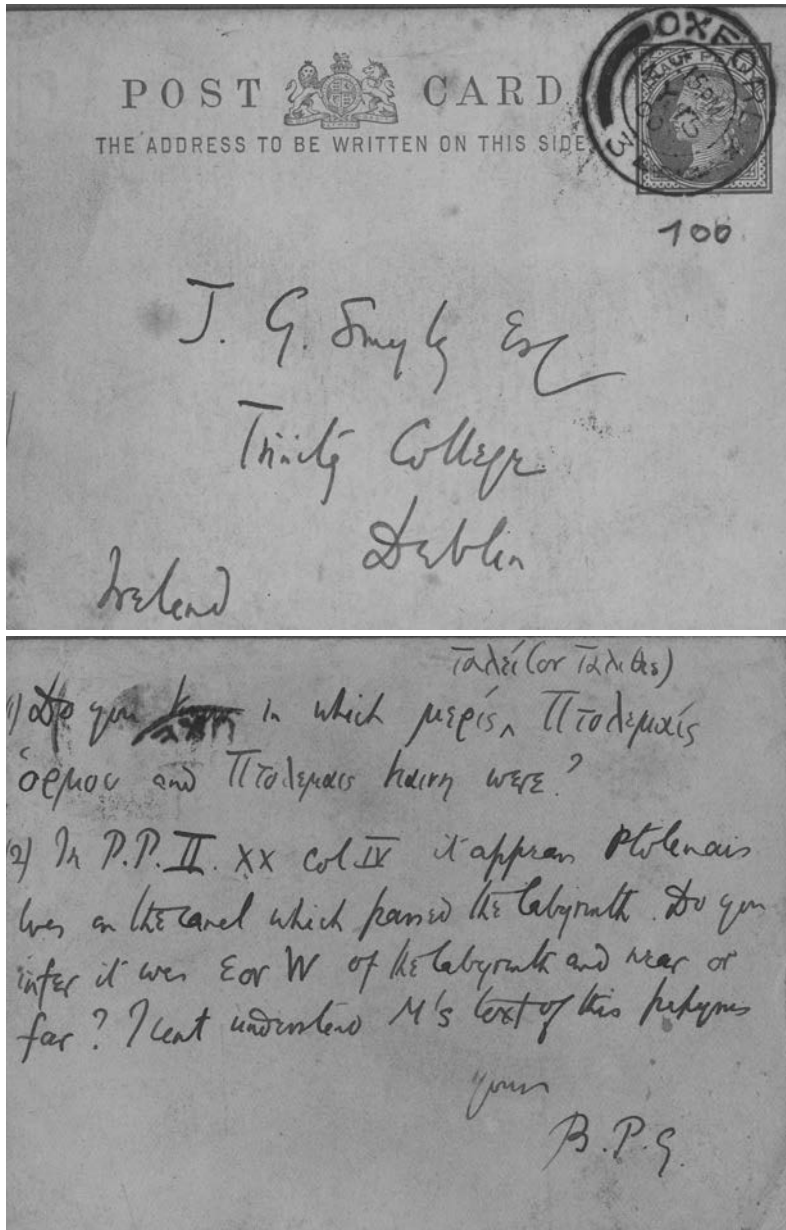 POST CARD
THE ADDRESS TO BE WRITTEN ON THIS SIDE
OXFORD
3
100
J. G. Smyly Esq
Trinity College
Dublin
Ireland
Ταλεί (or Ταλιθις)
1) Do you know in which μερίς ‸ Πτολεμαίς
ὅρμου and Πτολεμαις καινη were?
(2) In P.P. II. XX col IV it appears Ptolemais
was on the canal which passed the labyrinth. Do you
infer it was E or W of the labyrinth and near or
far? I cant understand M's text of this papyrus
yours
B.P.G.